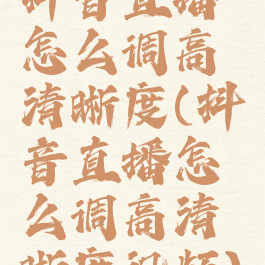 抖音直播
怎么调高
清晰度(抖
音直播怎
么调高清
晰度视频)